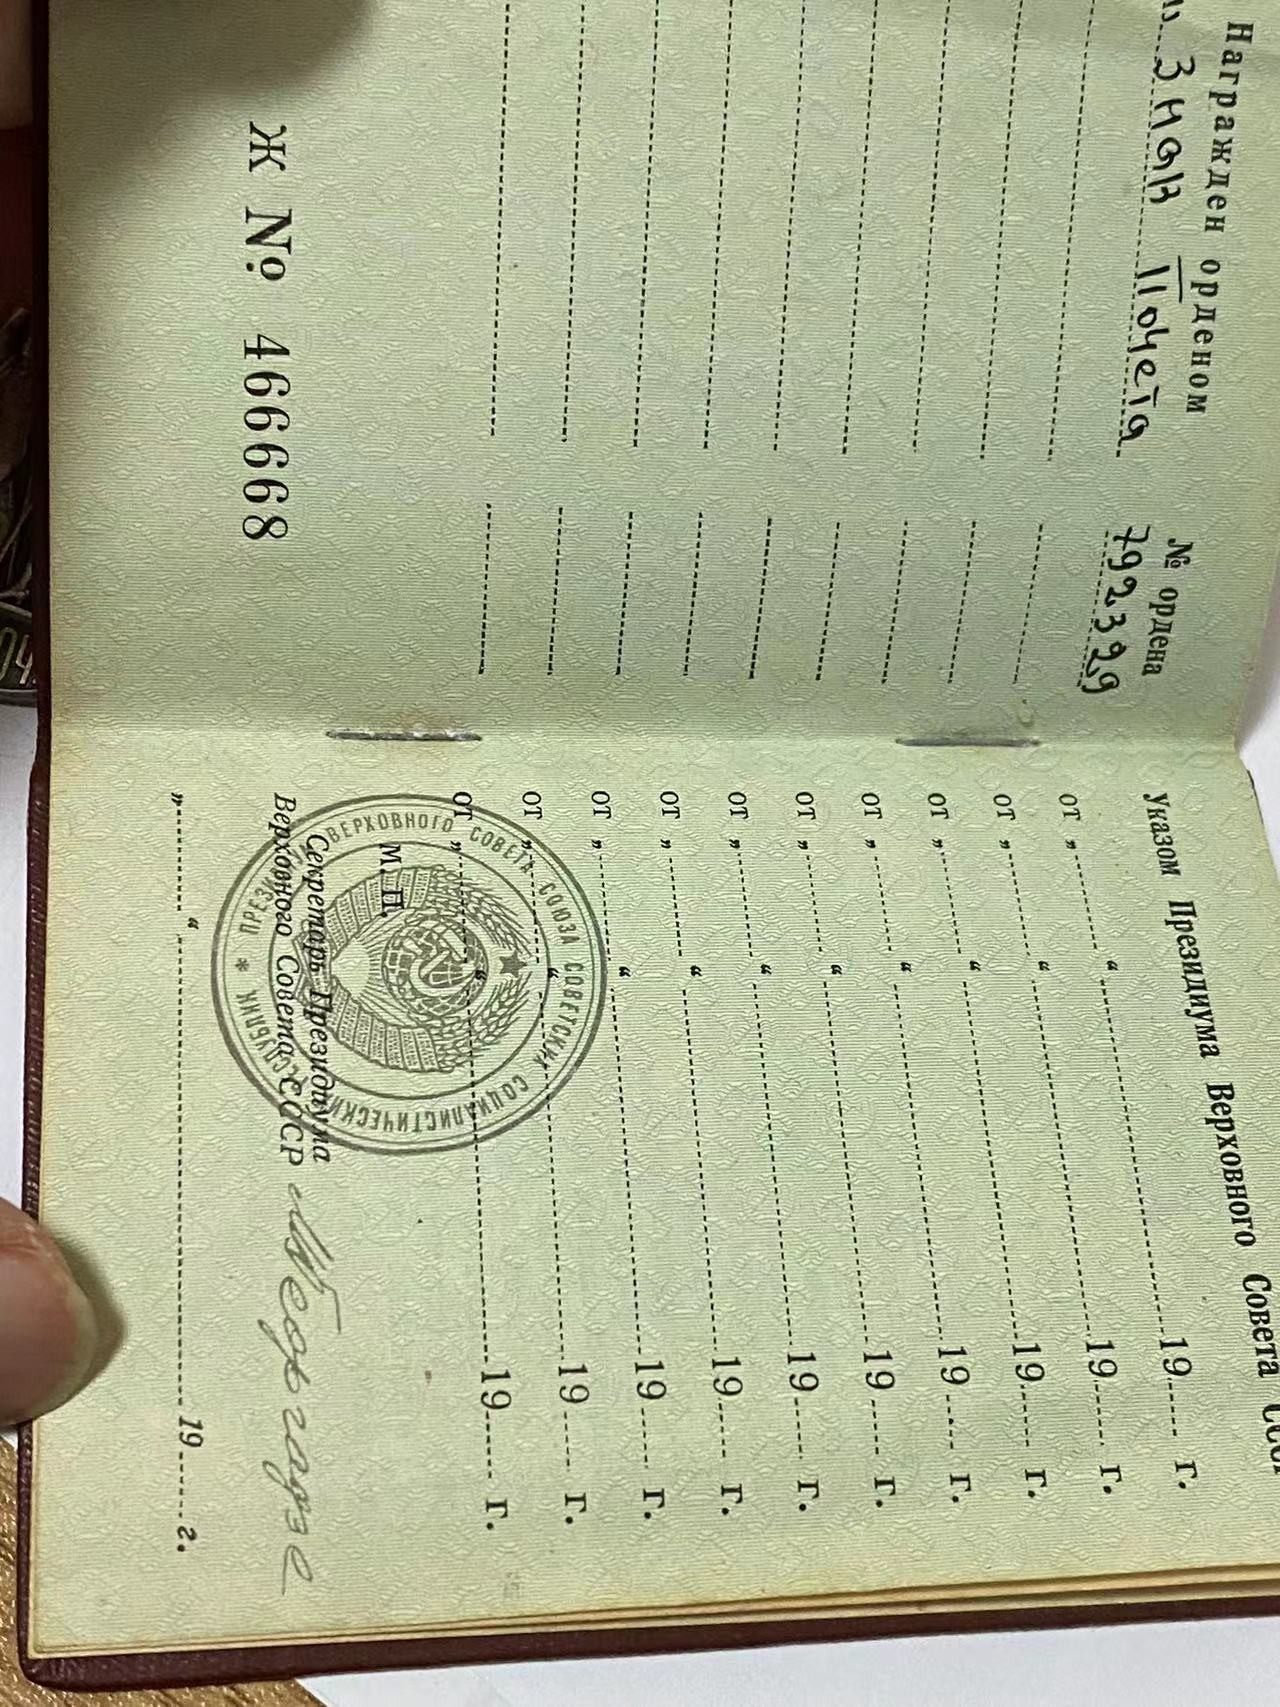 Награжден орденом
Знак Почета
№ ордена
792329
Ж № 466668
Указом Президиума Верховного Совета
от „ “ 19 г.
от „ “ 19 г.
от „ “ 19 г.
от „ “ 19 г.
от „ “ 19 г.
от „ “ 19 г.
от „ “ 19 г.
от „ “ 19 г.
от „ “ 19 г.
от „ “ 19 г.
М. П.
Секретарь Президиума
Верховного Совета СССР
„ “ 19 г.
ВЕРХОВНОГО СОВЕТА СОЮЗА СОВЕТСКИХ СОЦИАЛИСТИЧЕСКИХ